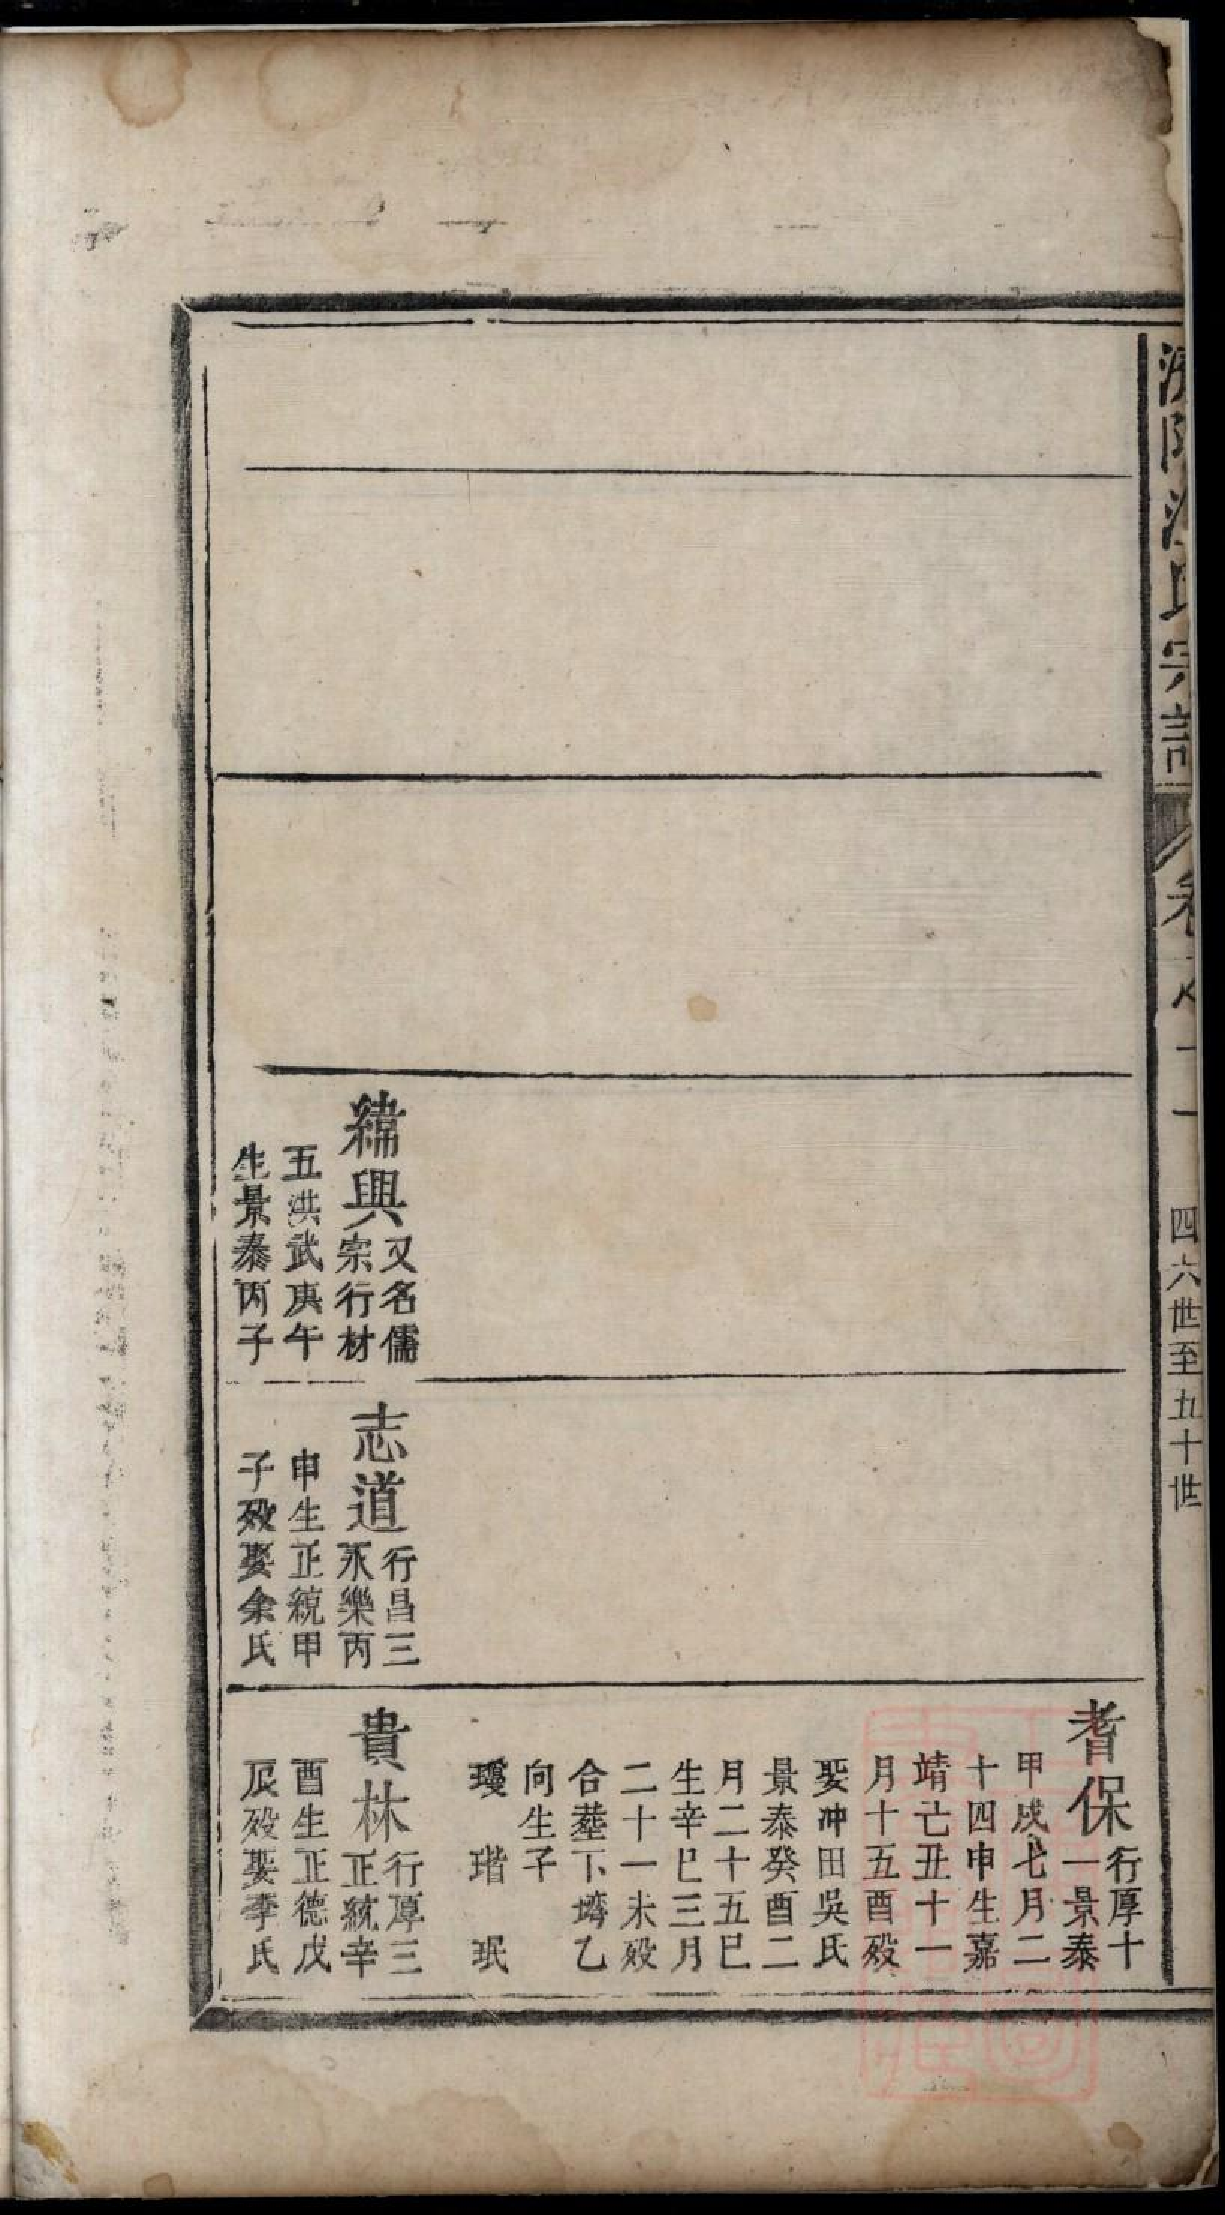 四六世至五十世
緯興又名儒
宗行材
五洪武庚午
生景泰丙子
志道行昌三
永樂丙
申生正統甲
子歿娶余氏
耆保行厚十
一景泰
甲戌七月二
十四申生嘉
靖己丑十一
月十五酉歿
娶冲田吳氏
景泰癸酉二
月二十五巳
生辛巳三月
二十一未歿
合塟下塆乙
向生子
瓊 瑎 珉
貴林行厚三
正統辛
酉生正德戊
辰歿娶李氏